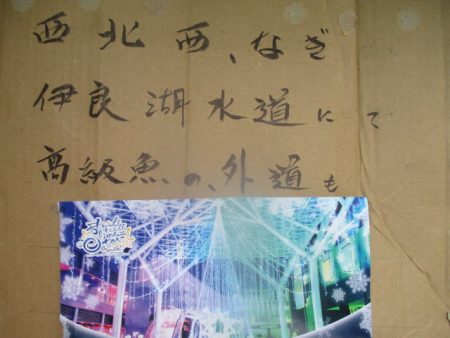 西北西、なぎ
伊良湖水道にて
高級魚の、外道も